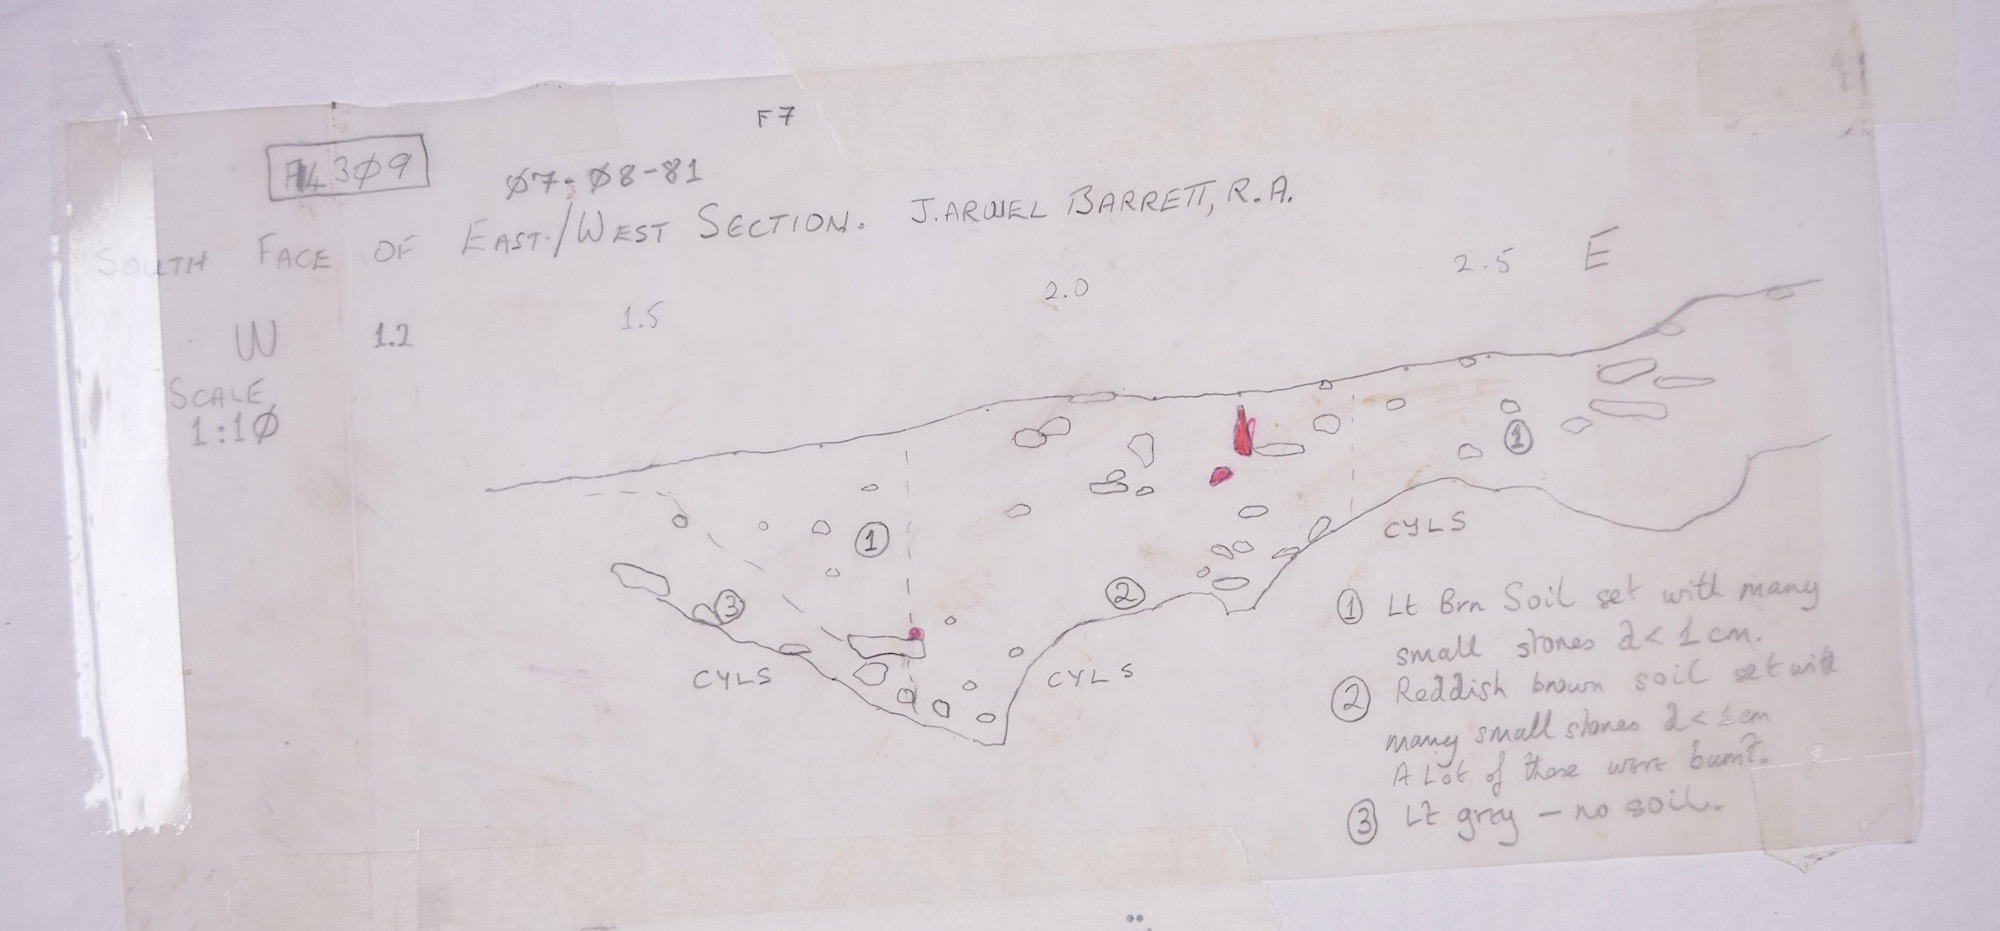 F7
309
Ø7-Ø8-81
SOUTH FACE OF EAST/WEST SECTION. J.ARWEL BARRETT, R.A.
W 1.2 1.5 2.0 2.5 E
SCALE
1:1Ø
1
1
3
2
CYLS
CYLS
CYLS
1 Lt Brn Soil set with many
small stones d< 1 cm.
2 Reddish brown soil set with
many small stones d< 1 cm
A Lot of these were burnt.
3 Lt grey – no soil.